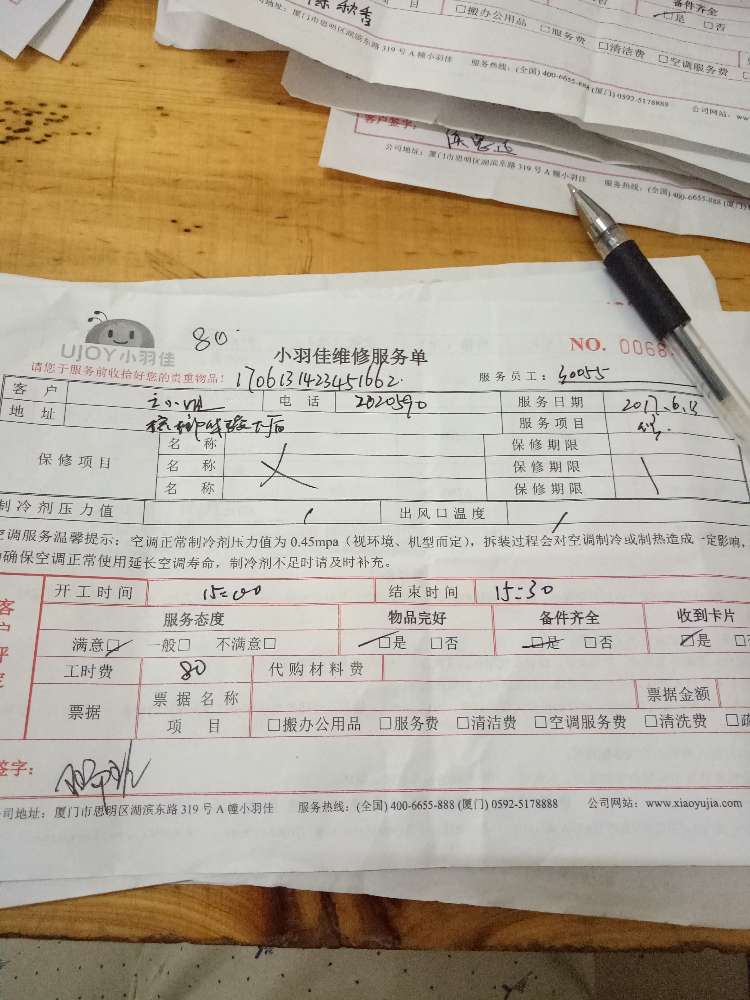 备件齐全
目 □搬办公用品 □服务费 □清洁费 □空调服务费
□是 □否
公司地址：厦门市思明区湖滨东路 319 号 A 幢小羽佳 服务热线：(全国) 400-6655-888 (厦门) 0592-5178888 公司网站：
客户签字：
公司地址：厦门市思明区湖滨东路 319 号 A 幢小羽佳 服务热线：(全国) 400-6655-888 (厦门)
80
UJOY小羽佳
小羽佳维修服务单
NO. 0066
请您于服务前收拾好您的贵重物品！
1706131423451662
服务员工：50055
客 户 电 话 2020590 服务日期 2017.6.13
地 址 服务项目
保修项目 名 称 保修期限
名 称 保修期限
名 称 保修期限
制冷剂压力值 出风口温度
空调服务温馨提示：空调正常制冷剂压力值为 0.45mpa（视环境、机型而定），拆装过程会对空调制冷或制热造成一定影响，
确保空调正常使用延长空调寿命，制冷剂不足时请及时补充。
开工时间 15:00 结束时间 15:30
服务态度 物品完好 备件齐全 收到卡片
满意□ 一般□ 不满意□ □是 □否 □是 □否 □是 □
工时费 80 代购材料费
票据 票据名称 票据金额
项 目 □搬办公用品 □服务费 □清洁费 □空调服务费 □清洗费 □疏
签字：
公司地址：厦门市思明区湖滨东路 319 号 A 幢小羽佳 服务热线：(全国) 400-6655-888 (厦门) 0592-5178888 公司网站：www.xiaoyujia.com